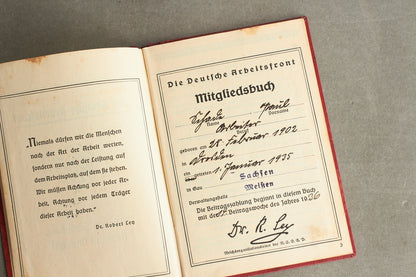 „Niemals dürfen wir die Menschen
nach der Art der Arbeit werten,
sondern nur nach der Leistung auf
dem Arbeitsplatz, auf dem sie stehen.
Wir müssen Achtung vor jeder Ar-
beit, Achtung vor jedem Träger
dieser Arbeit haben.“
Dr. Robert Ley
Die Deutsche Arbeitsfront
Mitgliedsbuch
Paul
Name Vorname
Arbeiter
Beruf
geboren am 28. Februar 1902
in Dresden
eingetreten 1. Januar 1935
in Gau Sachsen
Verwaltungsstelle Meißen
Die Beitragszahlung beginnt in diesem Buch
mit der Beitragswoche des Jahres 1936
Dr. R. Ley
Reichsorganisationsleiter der N.S.D.A.P.
3